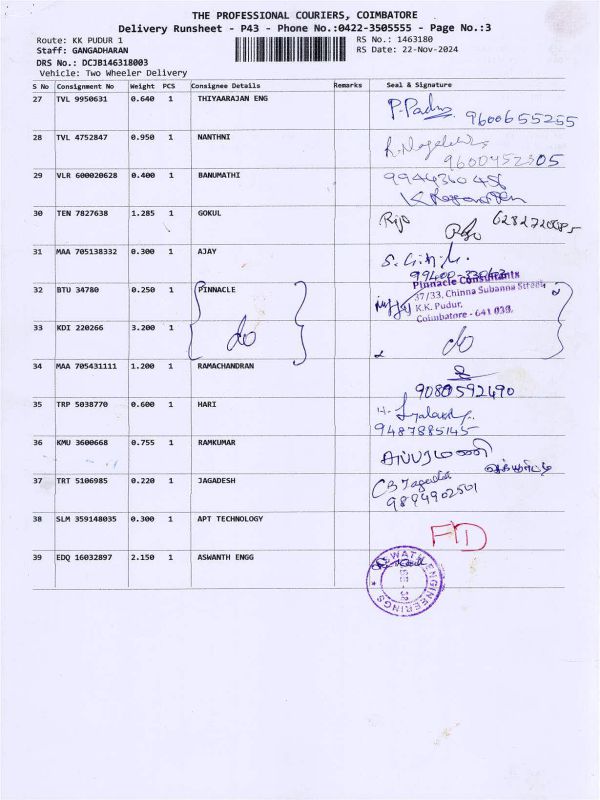 THE PROFESSIONAL COURIERS, COIMBATORE
Delivery Runsheet - P43 - Phone No.:0422-3505555 - Page No.:3
Route: KK PUDUR 1
RS No.: 1463180
Staff: GANGADHARAN
RS Date: 22-Nov-2024
DRS No.: DCJB146318003
Vehicle: Two Wheeler Delivery
S No Consignment No Weight PCS Consignee Details Remarks Seal & Signature
27 TVL 9950631 0.640 1 THIYAARAJAN ENG
9600655255
28 TVL 4752847 0.950 1 NANTHNI
9600452305
29 VLR 600020628 0.400 1 BANUMATHI
9944360456
30 TEN 7827638 1.285 1 GOKUL
6282720085
31 MAA 705138332 0.300 1 AJAY
32 BTU 34780 0.250 1 PINNACLE
Pinnacle Consultants
37/33, Chinna Subanna Street,
K.K. Pudur,
Coimbatore - 641 038.
33 KDI 220266 3.200 1 do do
34 MAA 705431111 1.200 1 RAMACHANDRAN
9080592490
35 TRP 5038770 0.600 1 HARI
9487885145
36 KMU 3600668 0.755 1 RAMKUMAR
37 TRT 5106985 0.220 1 JAGADESH
9894902501
38 SLM 359148035 0.300 1 APT TECHNOLOGY
39 EDQ 16032897 2.150 1 ASWANTH ENGG